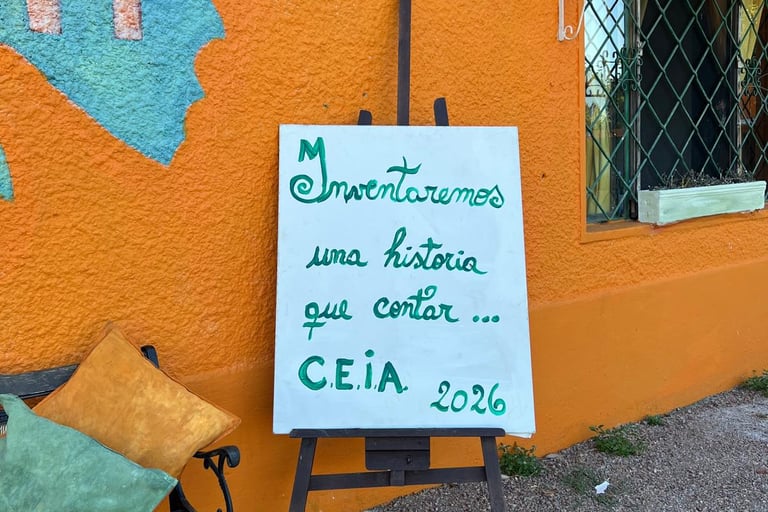 Inventaremos
una historia
que contar ...
C.E.I.A. 2026